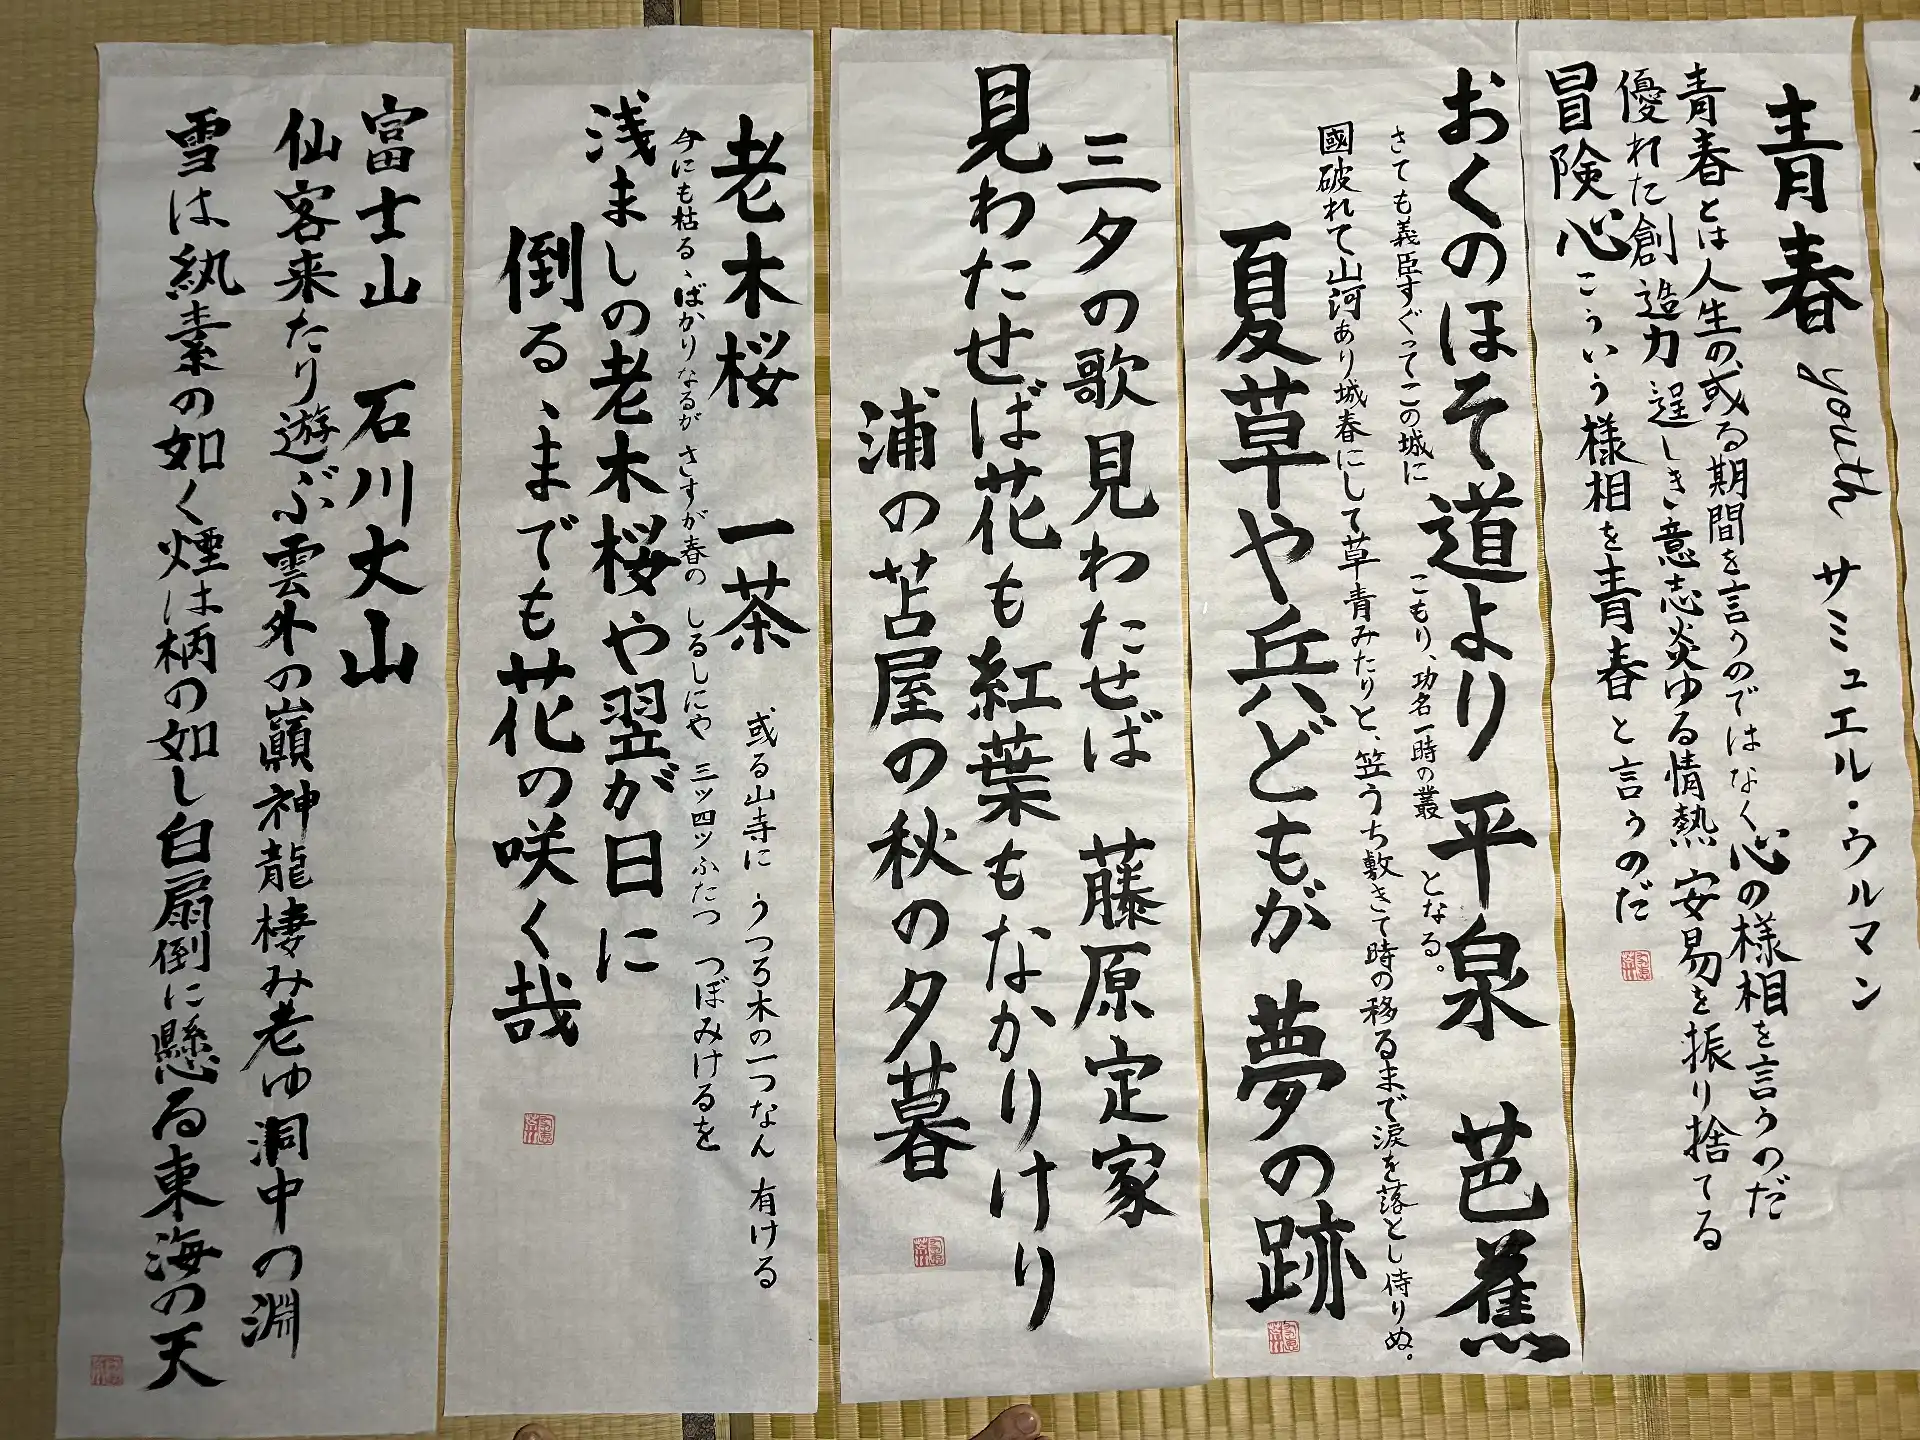 青春 youth サミュエル・ウルマン
青春とは人生の、或る期間を言うのではなく心の様相を言うのだ
優れた創造力 逞しき意志炎ゆる情熱 安易を振り捨てる
冒険心こういう様相を青春と言うのだ
おくのほそ道より 平泉 芭蕉
さても義臣すぐってこの城に
こもり、功名一時の叢
となる。
國破れて山河あり城春にして草青みたりと、笠うち敷きて時の移るまで涙を落とし侍りぬ。
夏草や兵どもが 夢の跡
三夕の歌見わたせば 藤原定家
見わたせば花も紅葉もなかりけり
浦の苫屋の秋の夕暮
老木桜 一茶
或る山寺に うつろ木の一つなん 有ける
今にも枯るゝばかりなるが さすが春の しるしにや 三ッ四ッふたつ つぼみけるを
浅ましの老木桜や翌が日に
倒るゝまでも花の咲く哉
富士山 石川丈山
仙客来たり遊ぶ雲外の巓神龍棲み老ゆ洞中の淵
雪は紈素の如く煙は柄の如し白扇倒に懸る東海の天